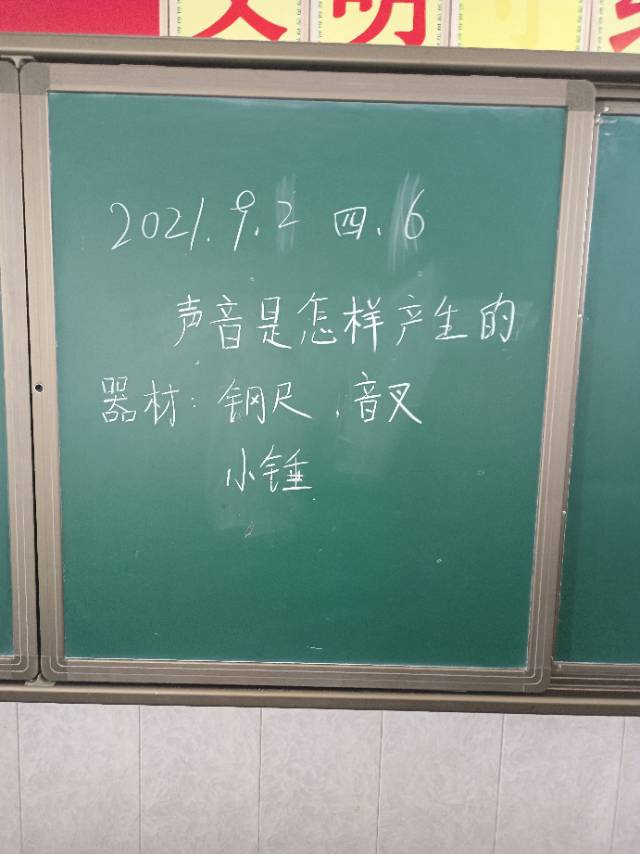 文明
2021.9.2 四.6
声音是怎样产生的
器材：钢尺、音叉
小锤